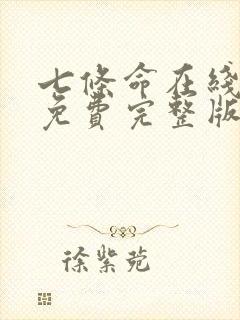 七條命在綫
免費完整版
徐紫菀